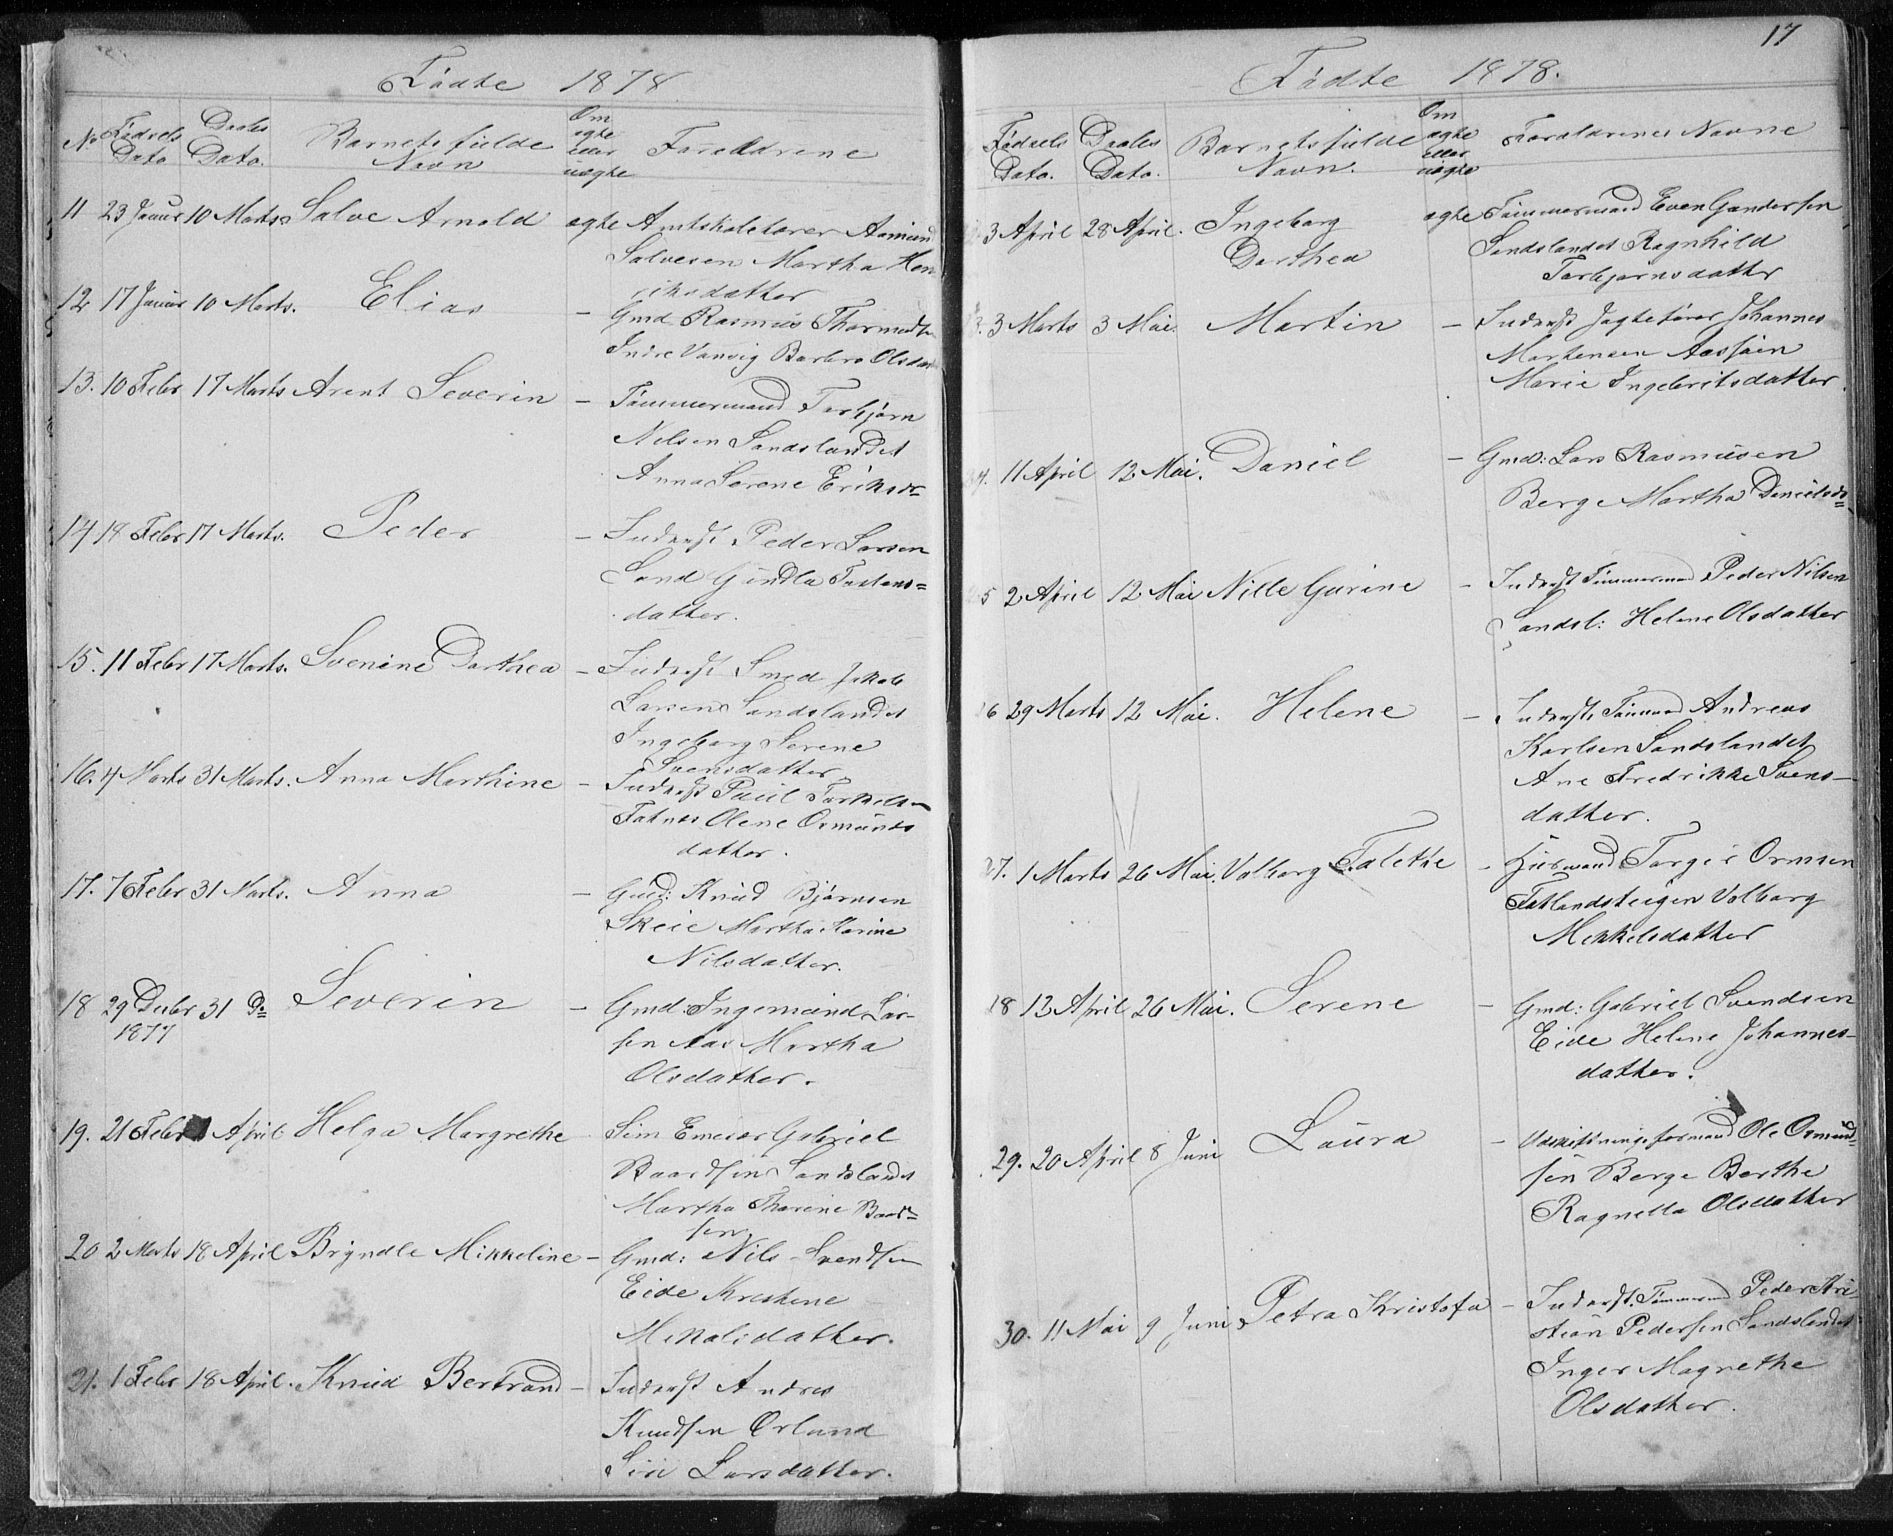 Fødte 1878
No Fødsels Daabs Barnets fulde Om Forældrene
Dato Dato. Navn ægte
eller
uægte
11 23 Januar 10 Marts Salve Arnold ægte Amtskoletører Aamund
Salvesen Martha Hen
riksdatter
12 17 Januar 10 Marts. Elias – Gmd Rasmus Thormods
Indre Vansvig Barbro Olsdat
13. 10 Febr 17 Marts Arent Severin – Tømmermand Torbjørn
Nilsen Sandslandet
Anna Serene Eriksdr
14 19 Febr 17 Marts. Peder – Inderst Peder Larsen
Sand Gundla Tostens=
datter.
15. 11 Febr 17 Marts. Svenine Dorthea – Inderst Smed Jakob
Larsen Sandslandet
Ingeborg Serene
Svensdatter
16. 4 Marts 31 Marts. Anna Marthine – Inderst Paul Torkelsen
Fatnes Olene Osmunds
datter.
17. 7 Febr 31 Marts. Anna – Gmd: Knud Bjørnsen
Skeie Martha Karine
Nilsdatter.
18 29 Decbr 31 Do Severin – Gmd: Ingemund Lar-
1877 sen Aas Martha
Olsdatter.
19. 21 Febr April Helga Margrethe Gabriel
Baardsen Sandslandet
Martha Thorine Baard=
sen
20 2 Marts 18 April Bryndle Mikkeline – Gmd: Nils Svendsen
Eide Kristine
Mikalsdatter.
21. 1 Febr 18 April. Knud Bertrand – Inderst Andres
Knudsen Ørland
Siri Larsdatter.
17
Fødte 1878.
Fødsels Daabs Barnets fulde Om Forældrenes Navne
Dato. Dato. Navn. ægte
eller
uægte
3 April 28 April. Ingeborg ægte Tømmermand Even Gundersen
Dorthea Sandslandet Ragnhild
Torbjørnsdatter
3. 3 Marts 3 Mai Martin – Inderst Jagtefører Johannes
Mortensen Aasføien
Marie Ingebritsdatter.
4. 11 April 12 Mai. Daniel – Gmd: Lars Rasmusen
Berge Martha Danielsdr=
5 2 April 12 Mai Nille Gurine – Inderst Tømmermand Peder Nilsen
Sandsl: Helene Olsdatter
26 29 Marts 12 Mai. Helene – Inderst, Tømmmd Andreas
Karlsen Sandslandet
Ane Fredrikke Svens-
datter.
27. 1 Marts 26 Mai. Valborg Talette – Husmand Torger Ormsen
Fatlandsteigen Valborg
Mikkelsdatter
18 12 April 26 Mai. Serene – Gmd: Gabriel Svendsen
Eide Helene Johannes-
datter.
29. 20 April 8 Juni Laura – Udskiftningsformand Ole Osmund=
sen Berge Berthe
Ragnella Olsdatter
30. 11 Mai 9 Juni Petra Kristofa – Inderst. Tømmermd Peder Kri
stian Pedersen Sandslandet
Inger Magrethe
Olsdatter.